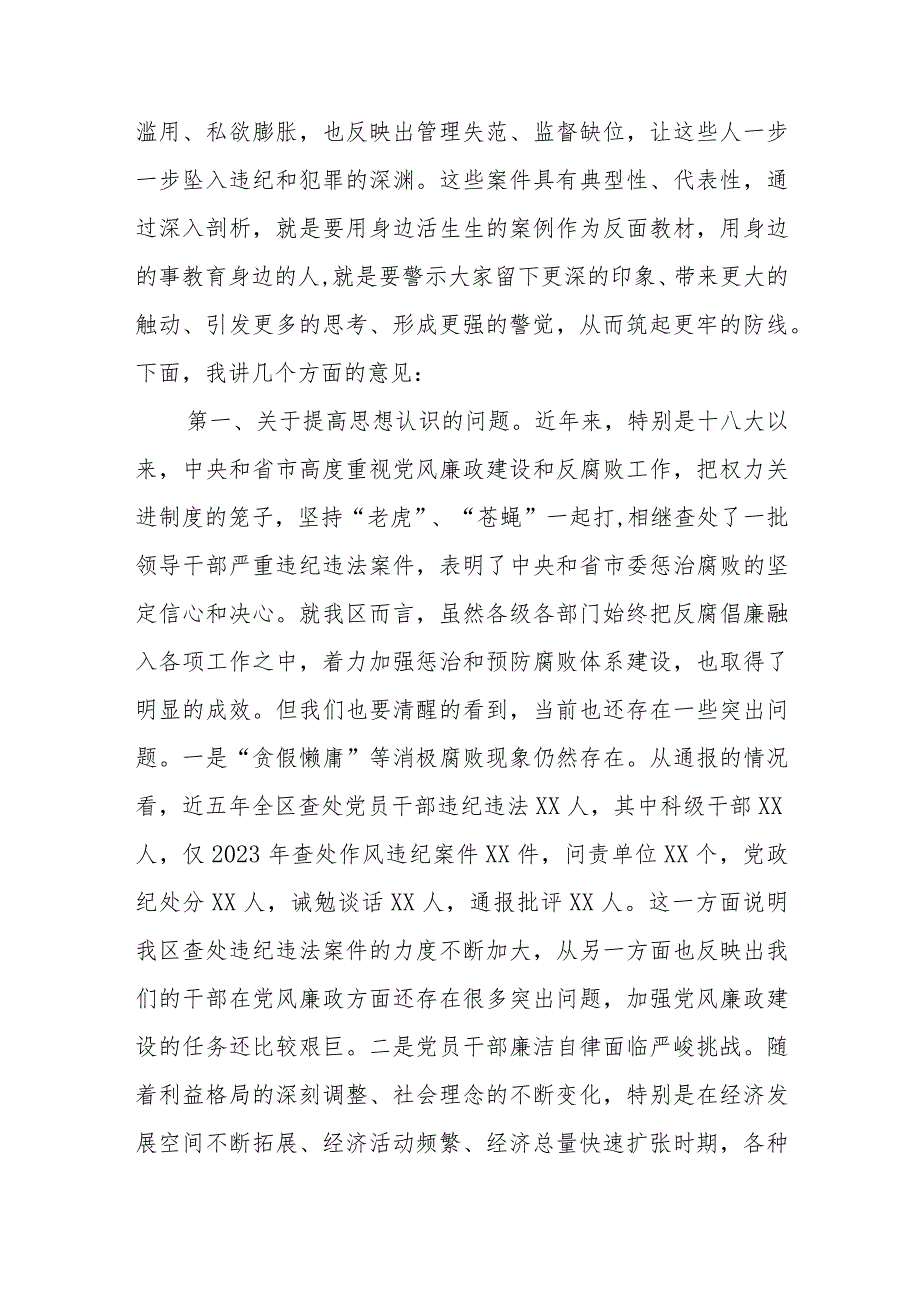 滥用、私欲膨胀，也反映出管理失范、监督缺位，让这些人一步
一步坠入违纪和犯罪的深渊。这些案件具有典型性、代表性，通
过深入剖析，就是要用身边活生生的案例作为反面教材，用身边
的事教育身边的人,就是要警示大家留下更深的印象、带来更大的
触动、引发更多的思考、形成更强的警觉，从而筑起更牢的防线。
下面，我讲几个方面的意见：
第一、关于提高思想认识的问题。近年来，特别是十八大以
来，中央和省市高度重视党风廉政建设和反腐败工作，把权力关
进制度的笼子，坚持“老虎”、“苍蝇”一起打,相继查处了一批
领导干部严重违纪违法案件，表明了中央和省市委惩治腐败的坚
定信心和决心。就我区而言，虽然各级各部门始终把反腐倡廉融
入各项工作之中，着力加强惩治和预防腐败体系建设，也取得了
明显的成效。但我们也要清醒的看到，当前也还存在一些突出问
题。一是“贪假懒庸”等消极腐败现象仍然存在。从通报的情况
看，近五年全区查处党员干部违纪违法XX人，其中科级干部XX
人，仅2023年查处作风违纪案件XX件，问责单位XX个，党政
纪处分XX人，诫勉谈话XX人，通报批评XX人。这一方面说明
我区查处违纪违法案件的力度不断加大，从另一方面也反映出我
们的干部在党风廉政方面还存在很多突出问题，加强党风廉政建
设的任务还比较艰巨。二是党员干部廉洁自律面临严峻挑战。随
着利益格局的深刻调整、社会理念的不断变化，特别是在经济发
展空间不断拓展、经济活动频繁、经济总量快速扩张时期，各种